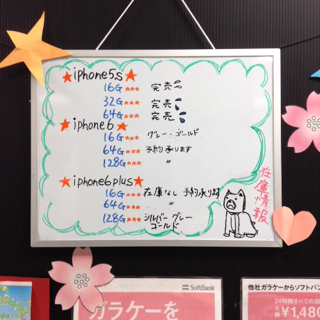 iphone5s
16G… 完売
32G… 完売
64G… 完売
iphone6
16G… グレー・ゴールド
64G… 予約承ります
128G… 〃
iphone6plus
16G… 在庫なし 予約承ります
64G… 〃
128G… シルバー グレー
ゴールド
在庫情報
SoftBank
ガラケーを
他社ガラケーからソフトバン
¥1,480